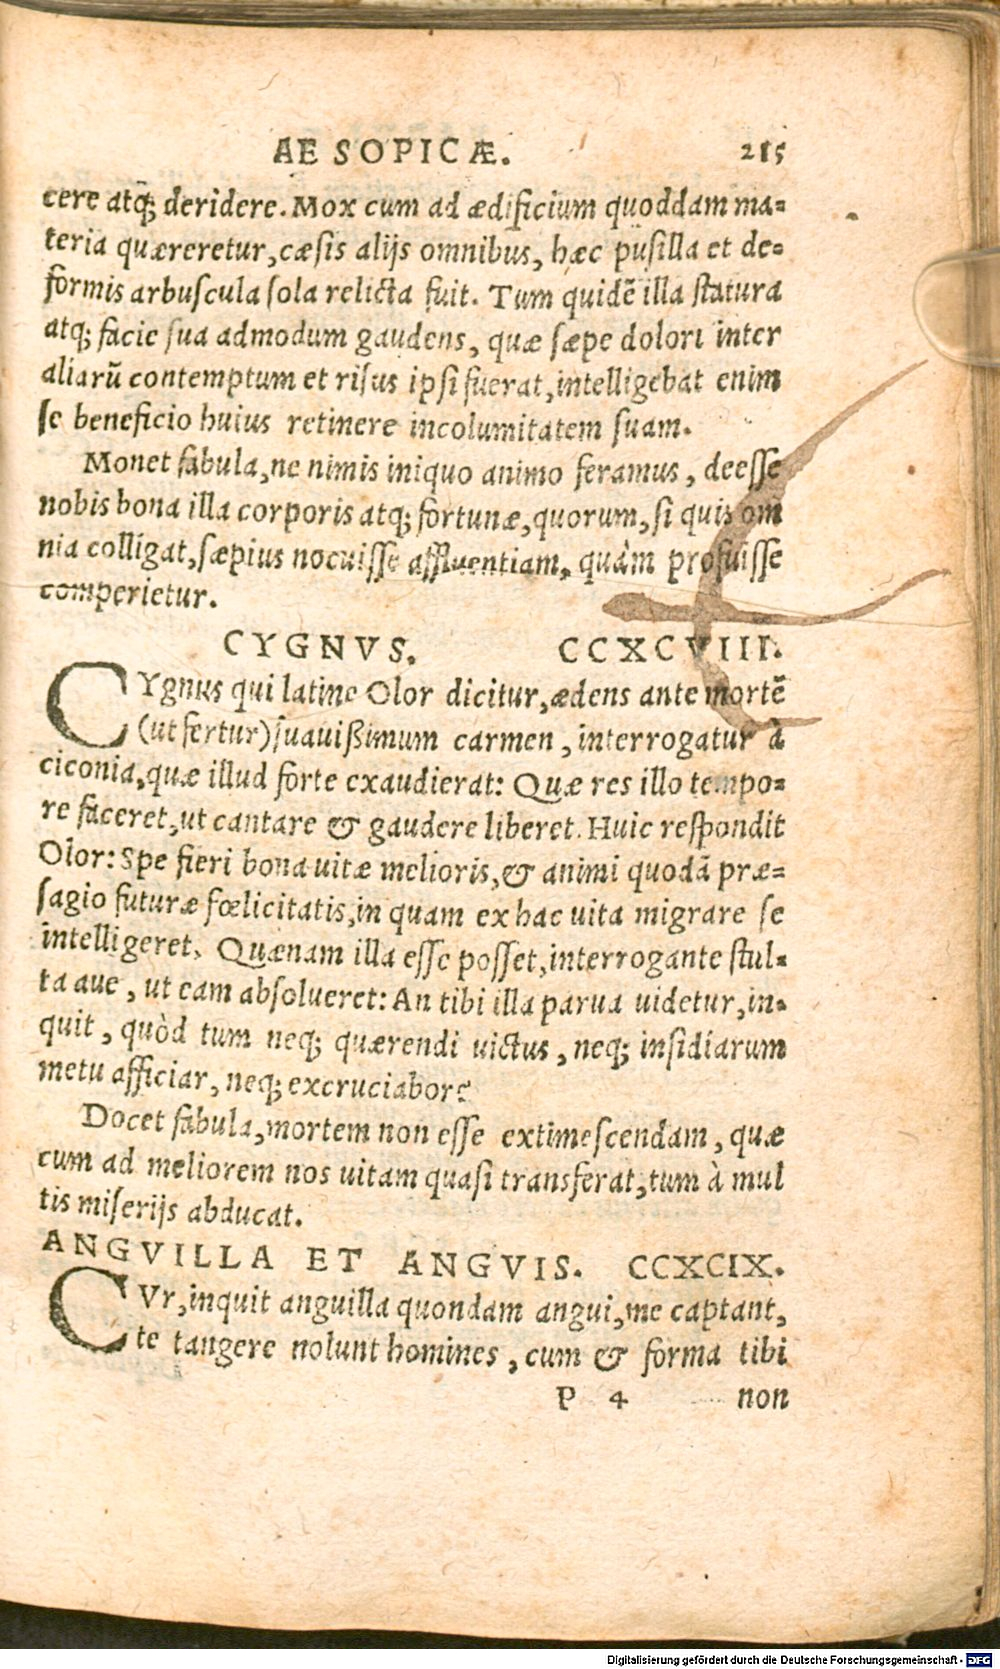 AESOPICÆ. 215
cere atq; deridere. Mox cum ad ædificium quoddam ma-
teria quæreretur, cæsis alijs omnibus, hæc pusilla et de-
formis arbuscula sola relicta fuit. Tum quidẽ illa statura
atq; facie sua admodum gaudens, quæ sæpe dolori inter
aliarũ contemptum et risus ipsi fuerat, intelligebat enim
se beneficio huius retinere incolumitatem suam.
Monet fabula, ne nimis iniquo animo feramus, deesse
nobis bona illa corporis atq; fortunæ, quorum, si quis om
nia colligat, sæpius nocuisse affluentiam, quàm profuisse
comperietur.
CYGNVS. CCXCVIII.
CYgnus qui latine Olor dicitur, ædens ante mortẽ
(ut fertur) suauißimum carmen, interrogatur à
ciconia, quæ illud forte exaudierat: Quæ res illo tempo-
re faceret, ut cantare & gaudere liberet. Huic respondit
Olor: Spe fieri bona uitæ melioris, & animi quodã præ-
sagio futuræ fœlicitatis, in quam ex hac uita migrare se
intelligeret. Quænam illa esse posset, interrogante stul-
ta aue, ut eam absolueret: An tibi illa parua uidetur, in-
quit, quòd tum neq; quærendi uictus, neq; insidiarum
metu afficiar, neq; excruciabor?
Docet fabula, mortem non esse extimescendam, quæ
cum ad meliorem nos uitam quasi transferat, tum à mul
tis miserijs abducat.
ANGVILLA ET ANGVIS. CCXCIX.
CVr, inquit anguilla quondam angui, me captant,
te tangere nolunt homines, cum & forma tibi
P 4 non
Digitalisierung gefördert durch die Deutsche Forschungsgemeinschaft - DFG